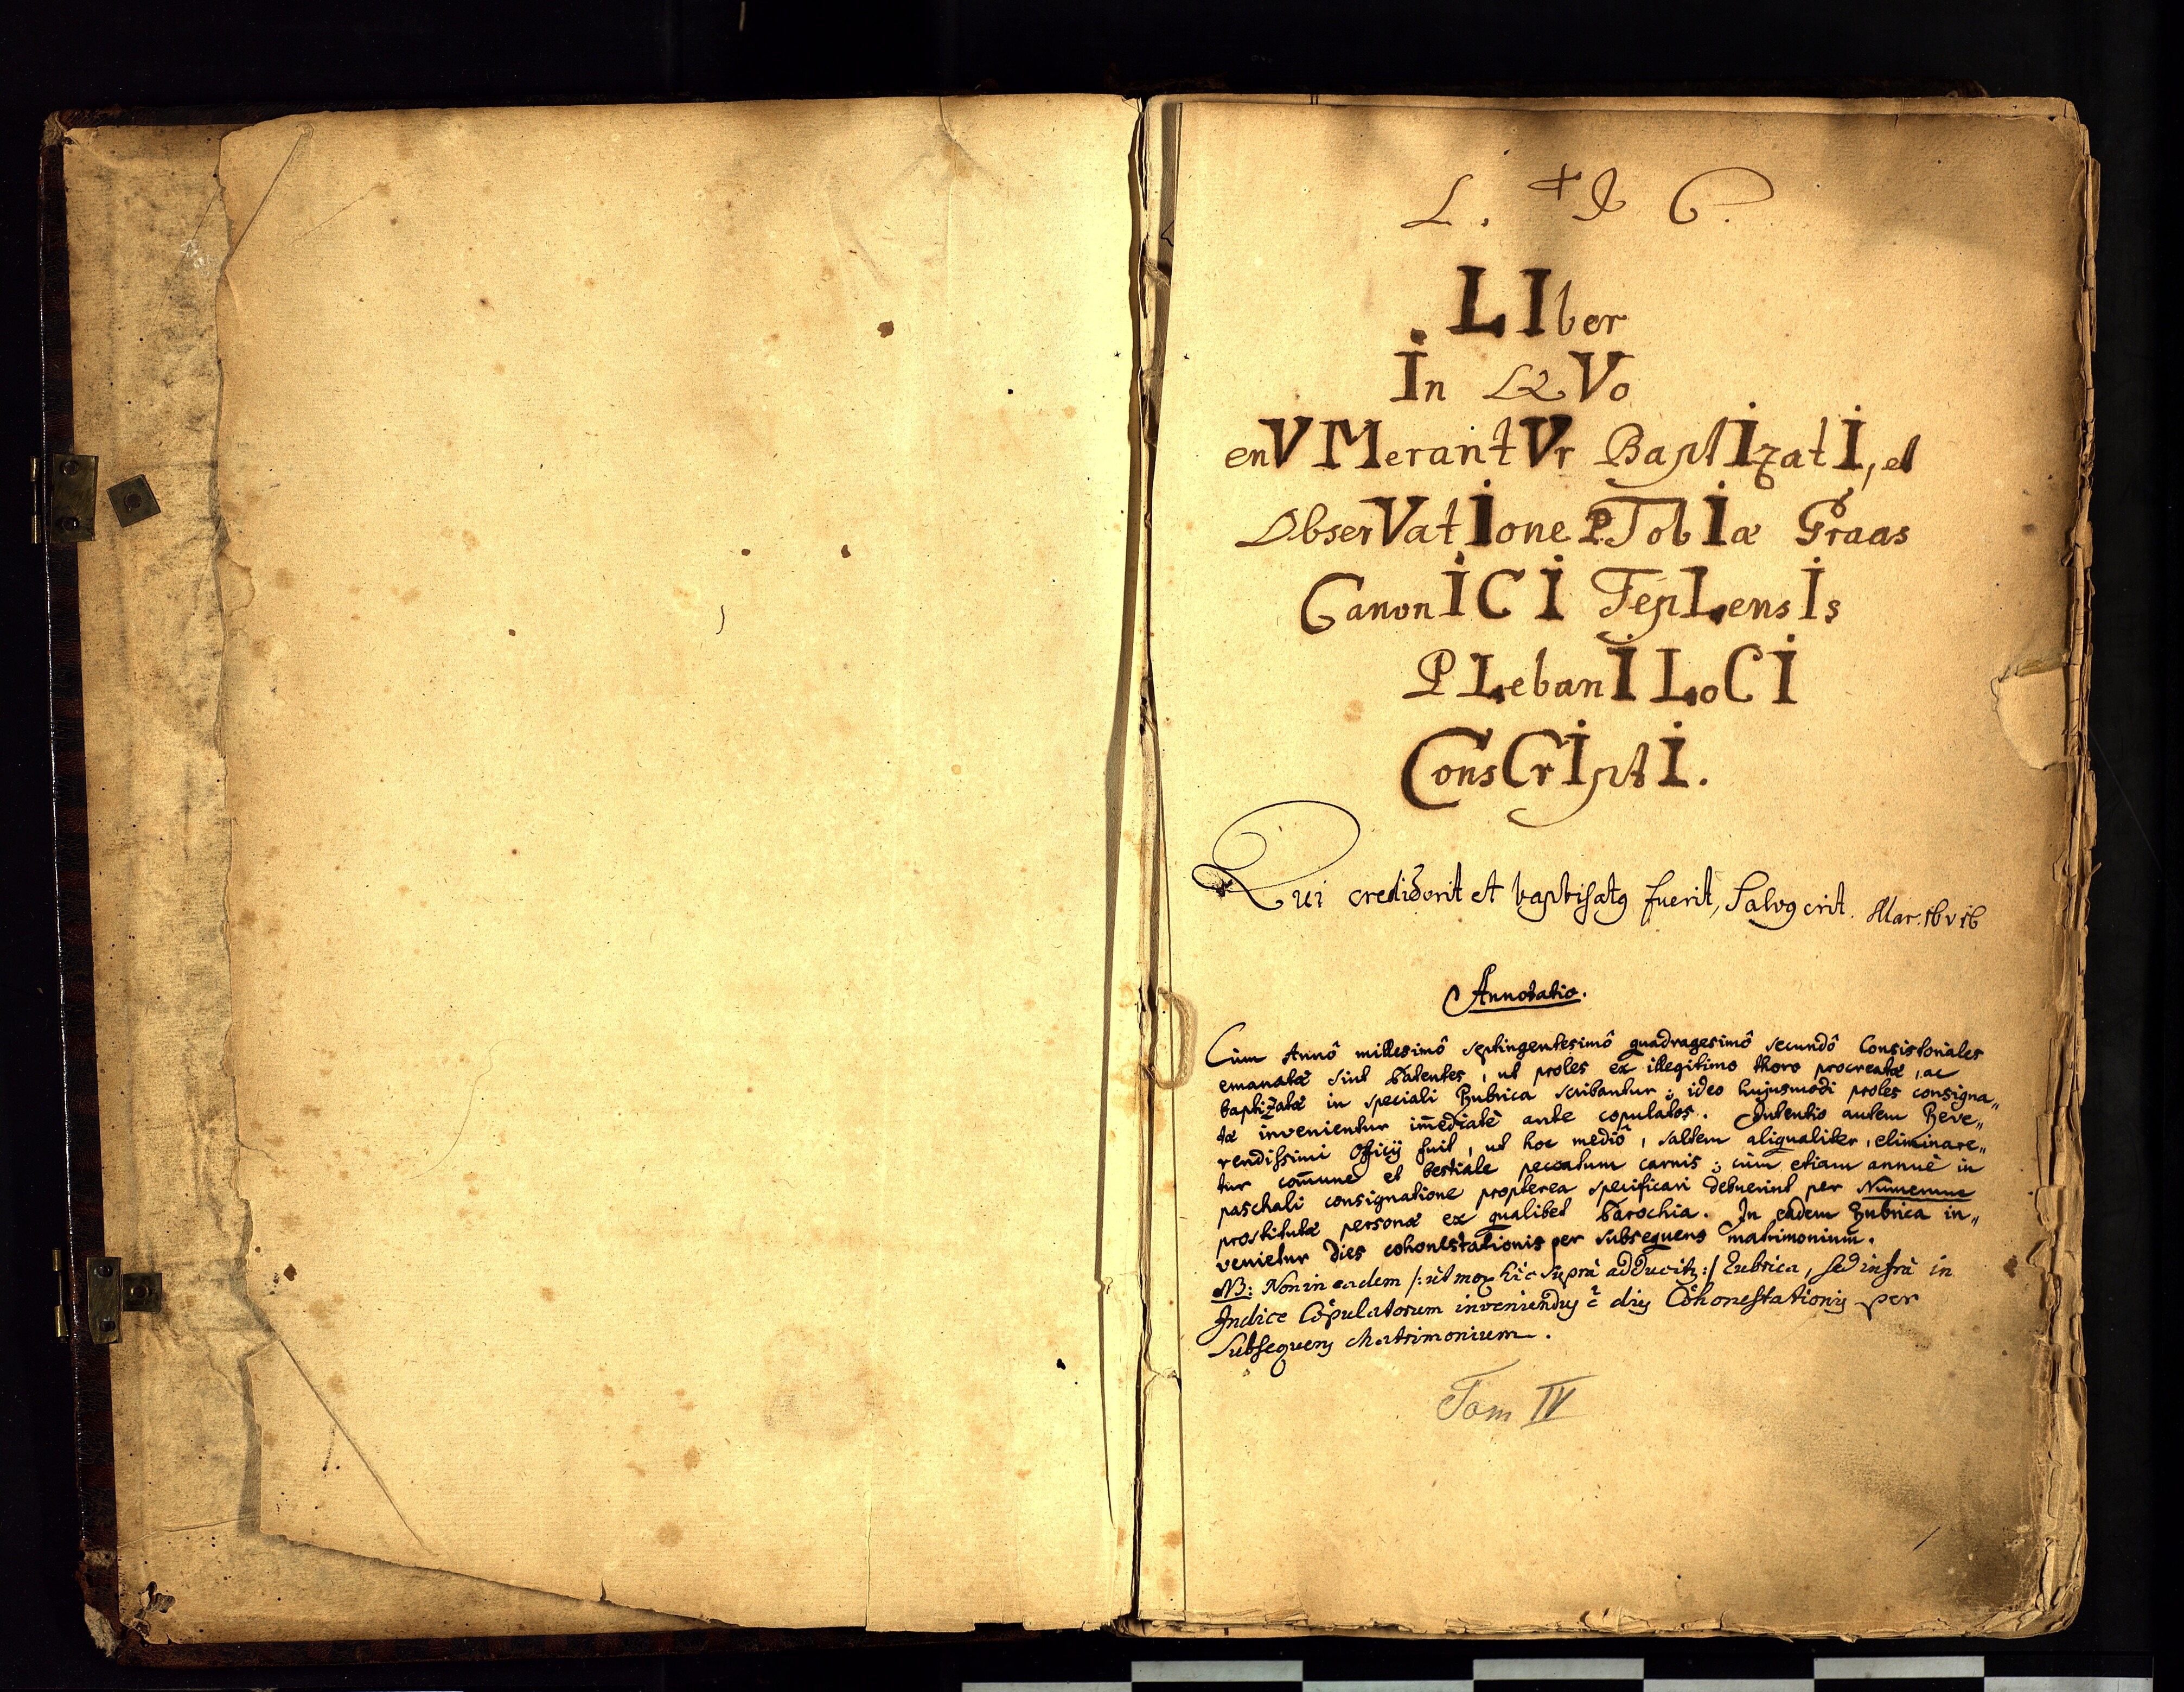 LIber
In qVo
enVMerantVr BaptIzatI, et
ObserVatIone P. TobIæ Graas
CanonICI TepLensIs
PLebanI LoCI
ConsCrIptI.
Qui crediderit et baptisatq fuerit, Salvq erit. Mar. 16 v 16
Annotatio.
Cùm Annô millesimô septingentesimô quadragesimô secundô Consistoriales
emanatæ sint Patentes, ut proles ex illegitimo thoro procreatæ, ac
baptizatæ in speciali Rubrica scribantur; ideo hujusmodi proles consigna„
tæ invenientur im̄ediatè ante copulatos. Intentio autem Reve„
rendissimi Officij fuit, ut hoc mediô, saltem aliqualiter, eliminare„
tur com̄une et bestiale peccatum carnis; cùm etiam annuè in
paschali consignatione propterea specificari debuerint per Numerum
prostitutæ personæ ex qualibet Parochia. In eadem Rubrica in„
venietur dies cohonestationis per subsequens matrimonium.
NB: Non in eadem /: ut mox hìc suprà adducitr :/ Rubrica, sed infrà in
Indice Copulatorum inveniendus ẽ dies Cohonestationis per
Subsequens Matrimonium.
Tom IV